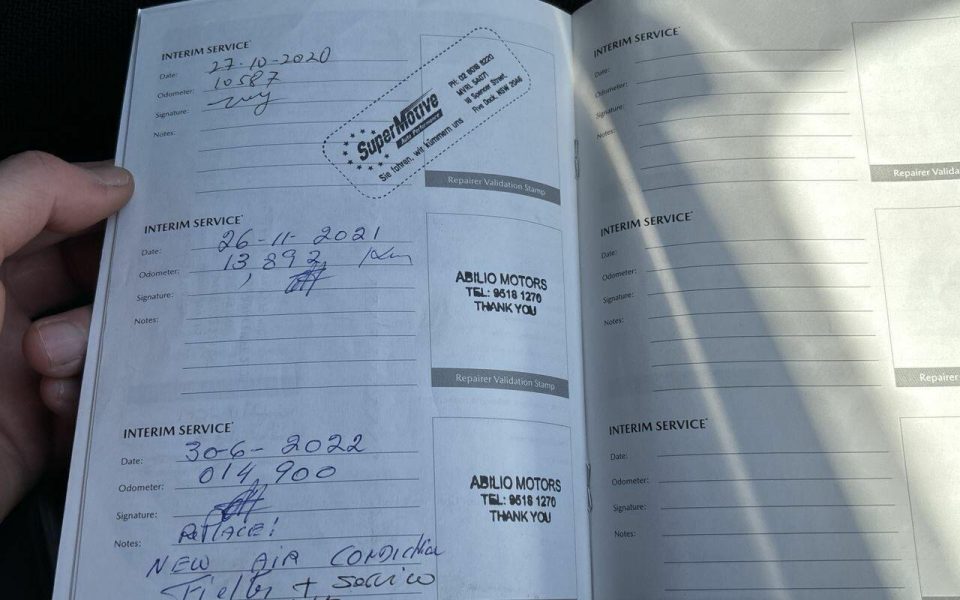 INTERIM SERVICE*
Date: 27-10-2020
Odometer: 10587
Signature:
Notes:
SuperMotive
Auto Performance
Sie fahren, wir kümmern uns
PH: 02 8018 8220
MVRL 54071
18 Spencer Street
Five Dock, NSW 2046
Repairer Validation Stamp
INTERIM SERVICE*
Date: 26-11-2021
Odometer: 13,892 Km
Signature:
Notes:
ABILIO MOTORS
TEL: 9518 1270
THANK YOU
Repairer Validation Stamp
INTERIM SERVICE*
Date: 30-6-2022
Odometer: 014,900
Signature:
Notes: REPLACE!
NEW AIR CONDITION
+ Service
ABILIO MOTORS
TEL: 9518 1270
THANK YOU
INTERIM SERVICE*
Date:
Odometer:
Signature:
Notes:
Repairer Val
INTERIM SERVICE*
Date:
Odometer:
Signature:
Notes:
Repairer
INTERIM SERVICE*
Date:
Odometer:
Signature:
Notes: